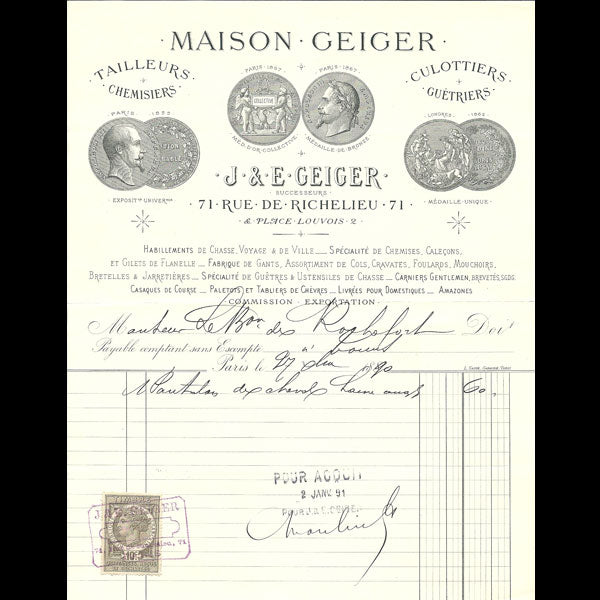 · MAISON · GEIGER ·
TAILLEURS
CHEMISIERS
CULOTTIERS
GUÊTRIERS
PARIS · 1867
PARIS · 1867
COLLECTIVE
MÉD. D'OR · COLLECTIVE
MÉDAILLE · DE · BRONZE
PARIS · 1855
EXPOSITN UNIVERLLE
LONDRES · 1862
MÉDAILLE · UNIQUE ·
· J · & · E · GEIGER ·
SUCCESSEURS
· 71 · RUE · DE · RICHELIEU · 71 ·
· & · PLACE · LOUVOIS · 2 ·
HABILLEMENTS DE CHASSE, VOYAGE & DE VILLE __ SPÉCIALITÉ DE CHEMISES, CALEÇONS,
ET GILETS DE FLANELLE __ FABRIQUE DE GANTS, ASSORTIMENT DE COLS, CRAVATES, FOULARDS, MOUCHOIRS,
BRETELLES & JARRETIÈRES __ SPÉCIALITÉ DE GUÊTRES & USTENSILES DE CHASSE __ CARNIERS GENTLEMEN, BREVETÉS, SGDG.
CASAQUES DE COURSE __ PALETOTS ET TABLIERS DE CHÈVRES __ LIVRÉES POUR DOMESTIQUES __ AMAZONES
COMMISSION - EXPORTATION
Monsieur Le Bon de Rochefort Doit
Payable comptant sans Escompte
Paris le 27 1890
1 Pantalon de cheval 60
TIMBRE
10c
POUR ACQUIT
2 JANV 91
POUR J. & E. GEIGER
J. & E. GEIGER
71
71